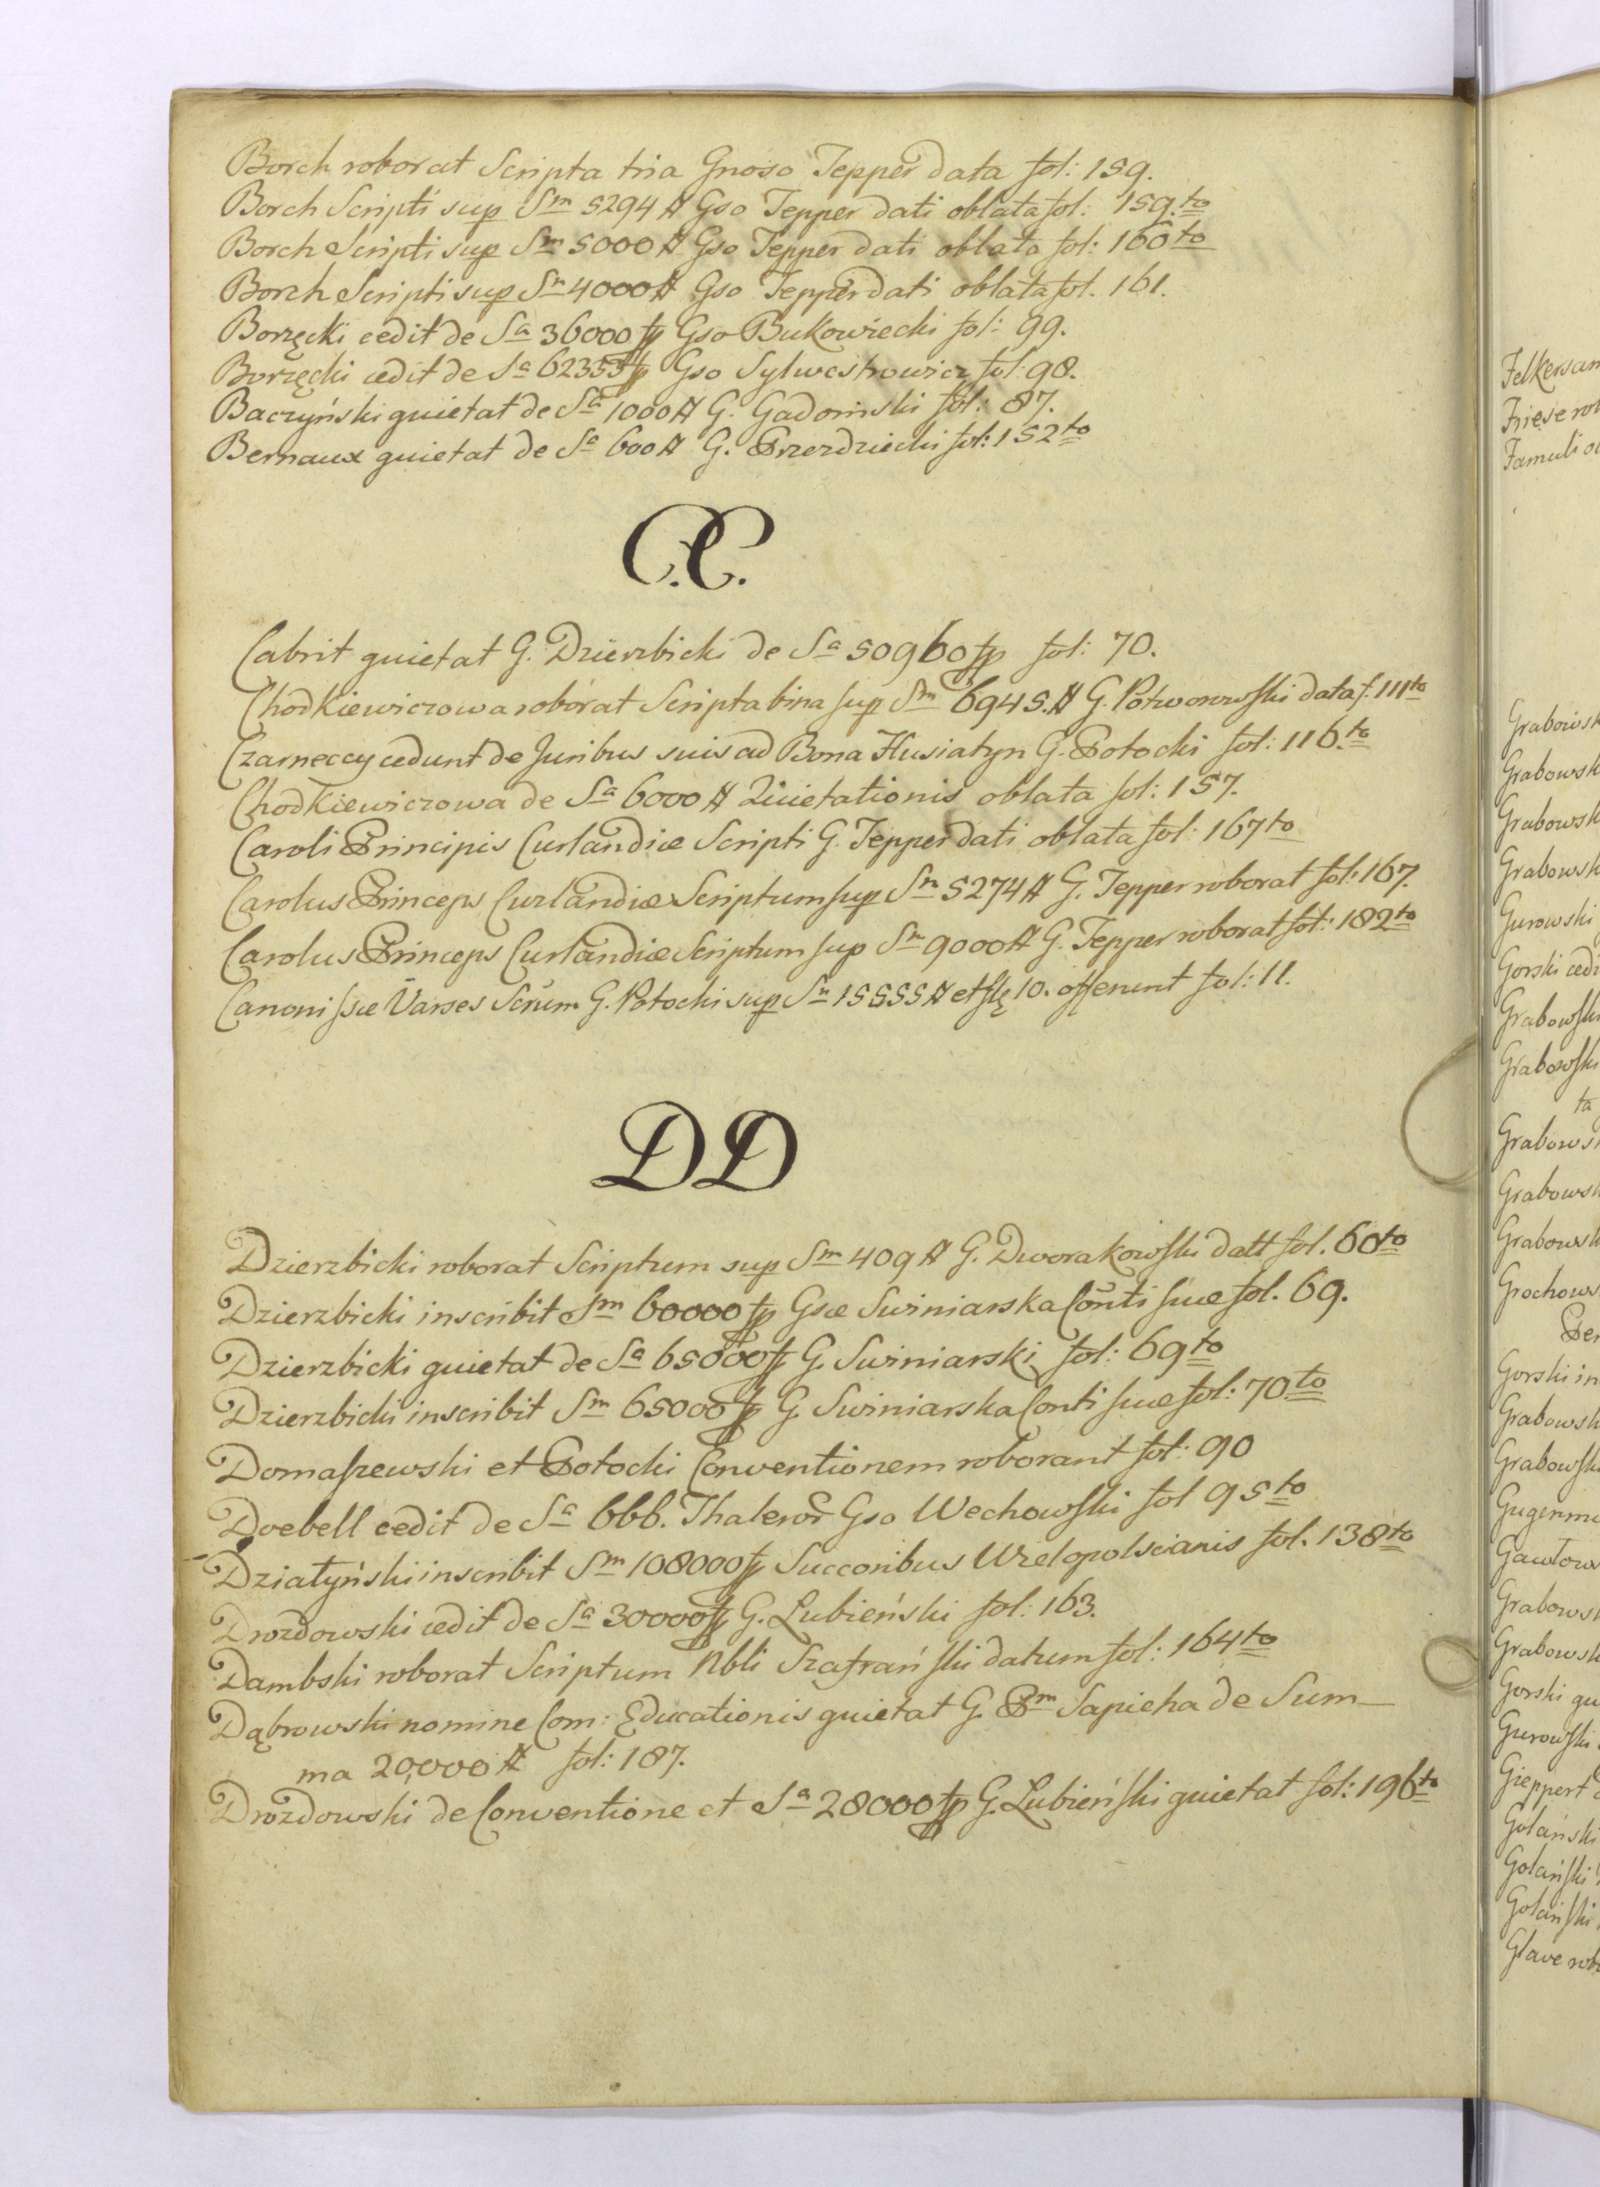 Borch roborat Scripta tria Gnoso Tepper data fol: 159.
Borch Scripti sup Sm 5294 # Gso Tepper dati oblata fol: 159.to
Borch Scripti sup Sm 5000 # Gso Tepper dati oblata fol: 160to
Borch Scripti sup Sm 4000 # Gso Tepper dati oblata fol. 161.
Borzęcki cedit de Sa 36000 fp Gso Bukowiecki fol: 99.
Borzęcki cedit de Sa 62355 fp Gso Sylwestrowicz fol: 98.
Baczyński quietat de Sa 1000 # G. Gadomski fol: 87.
Bernaux quietat de Sa 600 # G. Przezdziecki fol: 152to
C.C.
Cabrit quietat G. Dzierzbicki de Sa 50960 fp fol: 70.
Chodkiewiczowa roborat Scripta bina sup Sm 6945. # G. Potworowski data f: 111to
Czarneccy cedunt de Juribus suis ad Bona Husiatyn G. Potocki fol: 116.to
Chodkiewiczowa de Sa 6000 # Quietationis oblata fol: 157.
Caroli Principis Curlandiæ Scripti G. Tepper dati oblata fol: 167to
Carolus Princeps Curlandiæ Scriptum sup Sm 5274 # G. Tepper roborat fol: 167.
Carolus Princeps Curlandiæ Scriptum sup Sm 9000 # G. Tepper roborat fol: 182to
Canonissæ Varses Scrum G. Potocki sup Sm 15555 # et 10. offerunt fol: 11.
DD
Dzierzbicki roborat Scriptum sup Sm 409 # G. Dworakowski datt fol. 60to
Dzierzbicki inscribit Sm 60000 fp Gsæ Swiniarska Conti suæ fol. 69.
Dzierzbicki quietat de Sa 65000 fp G. Swiniarski fol: 69to
Dzierzbicki inscribit Sm 65000 fp G. Swiniarska Conti suæ fol: 70.to
Domaszewski et Potocki Conventionem roborant fol: 90
Doebell cedit de Sa 666. Thaleror Gso Wechowski fol 95to
Działyński inscribit Sm 108000 fp Succoribus Wielopolscianis fol. 138to
Drozdowski cedit de Sa 30000 fp G. Lubieński fol: 163.
Dambski roborat Scriptum Nbli Szafrański datum fol: 164to
Dąbrowski nomine Com: Educationis quietat G. Pm Sapieha de Sum
ma 20,000 # fol: 187.
Drozdowski de Conventione et Sa 28000 fp G. Lubieński quietat fol: 196to
Felkersam
Friese
Famuli
Grabowsk
Grabowsk
Grabowsk
Grabowsk
Gurowski
Gorski cedi
Grabowski
Grabowski
ta
Grabows
Grabowsk
Grabowsk
Grochows
Gorski in
Grabowsk
Grabowski
Grabowsk
Grabowsk
Gorski qu
Gurowski
Gieppert
Golański
Golański
Golański
Glave rob